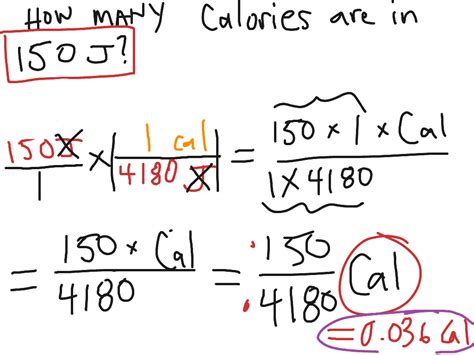 How MANY Calories are in
150 J?
150J/1 × |1 cal/4180 J| = 150 × 1 × Cal/1 × 4180
= 150 × Cal/4180 = 150/4180 Cal
= 0.036 Cal